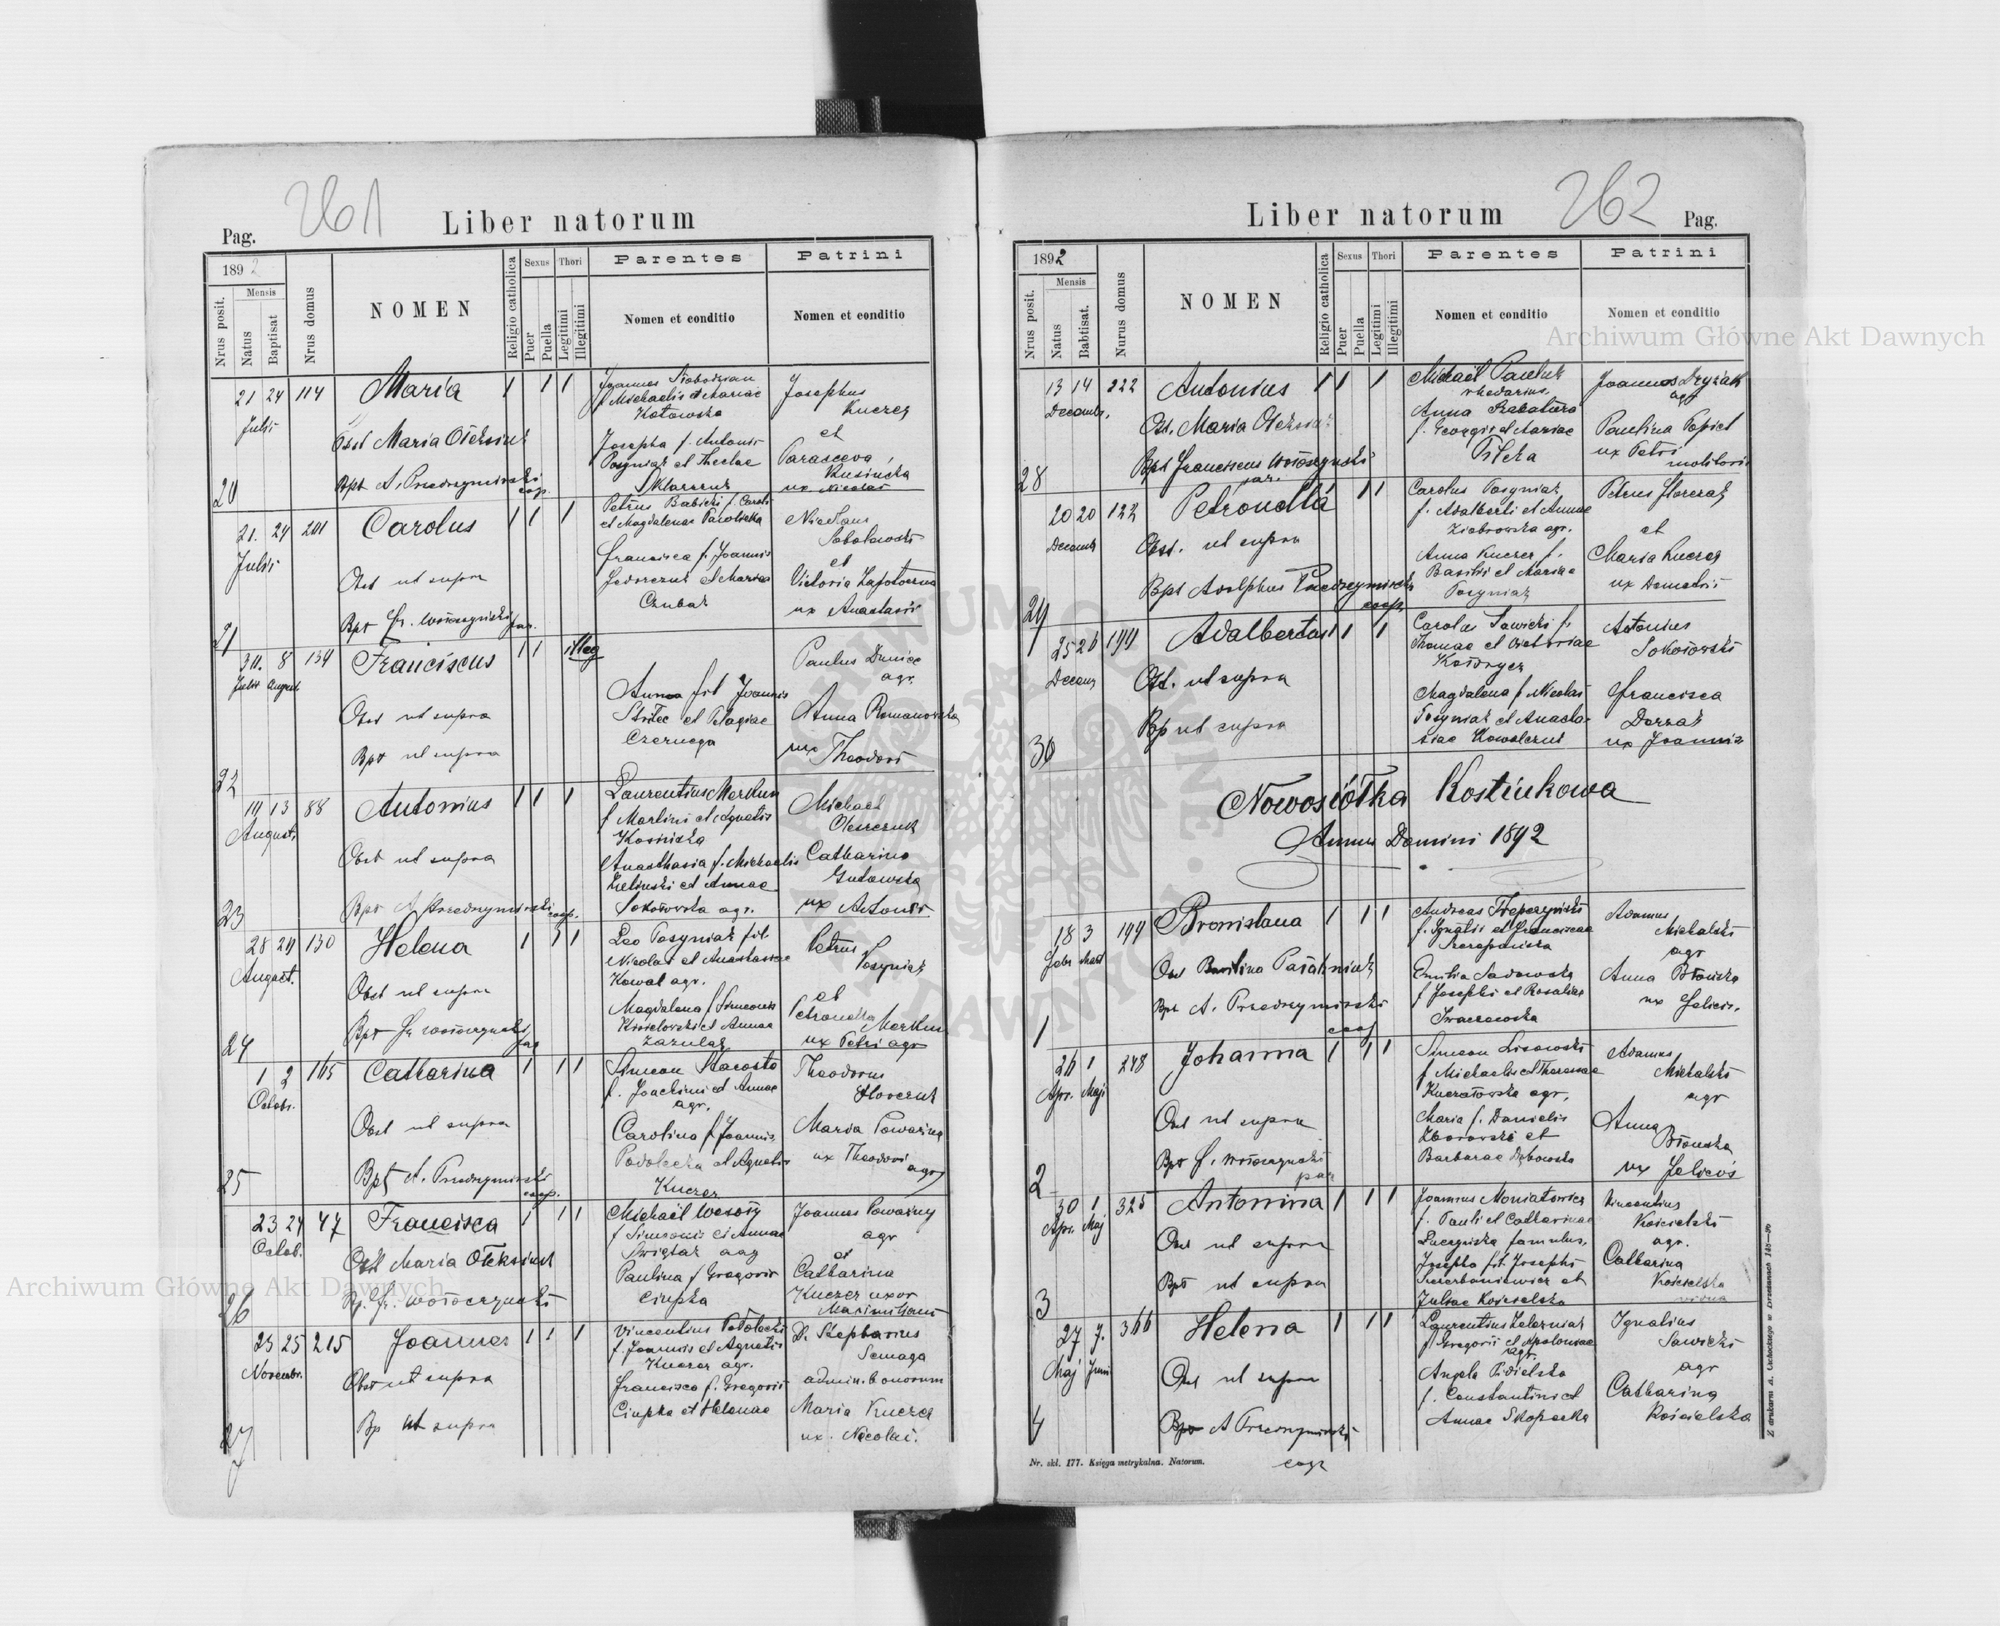 261
Liber natorum
Pag.
1892
Mensis
Nrus posit.
Natus
Baptisat
Nrus domus
NOMEN
Religio catholica
Sexus
Puer
Puella
Thori
Legitimi
Illegitimi
Parentes
Nomen et conditio
Patrini
Nomen et conditio
20
21 24 114
Julii
Maria
1 1 1
Obst Maria Oleksiuk
Bpt A. Przedrzymirski
coop.
Josepha f. Antonii
Posyniak et Theclae
Josephus
Kuczer
et
Parasceva
ux Nicolai
21
21. 24 201
Julii
Carolus
1 1 1
Obst ut supra
Bpt Fr. Wołoszyński
par.
Petrus Babicki f. Caroli
et Magdalenae
Francisca f. Joannis
et Mariae
Czubak
Nicolaus
et
Victoria
ux Anastasii
22
30. 8 134
Julii August
Franciscus
1 1 illeg
Obst ut supra
Bpt ut supra
Anna fil Joannis
et Pelagiae
Czernega
Paulus
agr.
Anna Romanowska
ux
Theodori
23
11 13 88
August.
Antonius
1 1 1
Obst ut supra
Bpt A Przedrzymirski
coop.
Laurentius Merkun
f Martini et Agnetis
Anasthasia f. Michaelis
Zielinski et Annae
Sokołowska agr.
Michael
Oleszczuk
Catharina
Gutowska
ux Antonii
24
28 29 130
August.
Helena
1 1 1
Obst ut supra
Bpt Fr Wołoszyński
par
Leo Posyniak fil.
Nicolai et Anastasiae
Kowal agr.
Magdalena f Simeonis
et Annae
Zazulak
Petrus
Posyniak
et
Petronella
Merkun
ux Petri agr
25
1 2 165
Octobr.
Catharina
1 1 1
Obst ut supra
Bpt A. Przedrzymirski
coop.
Simeon Starosta
f. Joachimi et Annae
agr.
Carolina f Joannis
Podolecka et Agnetis
Kuczer
Theodorus
Maria Poważna
ux Theodori
agr
26
23 24 47
Octob.
Francisca
1 1 1
Obst Maria Oleksiuk
Bp. Fr. Wołoszyński
Michael Wesoły
f Simeonis et Annae
Świętak agr
Paulina f Gregorii
Ciupka
Joannes Poważny
agr
et
Catharina
Kuczer uxor
Maximiliani
27
23 25 215
Novembr.
Joannes
1 1 1
Obst ut supra
Bp ut supra
Vincentius Podolecki
f. Joannis et Agnetis
Kuczer agr.
Francisca f. Gregorii
Ciupka et Helenae
D. Stephanus
Semaga
admin. bonorum
Maria Kuczer
ux. Nicolai.
262
Liber natorum
Pag.
1892
Mensis
Nrus posit.
Natus
Babtisat.
Nurus domus
NOMEN
Religio catholica
Sexus
Puer
Puella
Thori
Legitimi
Illegitimi
Parentes
Nomen et conditio
Patrini
Nomen et conditio
28
13 14 222
Decembr.
Antonius
1 1 1
Obst. Maria Oleksiuk
Bpt Franciscus Wołoszyński
par.
Michael Pawluk
rhedarius.
Anna
f. Georgii et Mariae
Pilcka
Joannes
agr
Paulina Papiel
ux Petri
molitoris
29
20 20 122
Decemb
Petronella
1 1
Obst. ut supra
Bpt Adolphus Przedrzymirski
coop
Carolus Posyniak
f. Adalberti et Annae
Ziobrowska agr.
Anna Kuczer f.
Basilii et Mariae
Posyniak
Petrus
et
Maria Kuczer
ux Demetrii
30
25 26 191
Decemb
Adalbertus
1 1 1
Obst. ut supra
Bp ut supra
Carolus Sawicki f.
Thomae et Victoriae
Magdalena f. Nicolai
Posyniak et Anasta-
siae Kowalczuk
Antonius
Sokołowski
Francisca
ux Joannis
Nowosiółka Kostiukowa
Annus Domini 1892
1
18 3 199
Febr Mart
Bronislava
1 1 1
Bpt A. Przedrzymirski
coop
Andreas
f. Ignatii et Franciscae
Emilia Sadowska
f Josephi et Rosaliae
Iwaszowska
Adamus
Michalski
agr
Anna Błońska
ux Felicis.
2
26 1 248
Apr. Maji
Johanna
1 1 1
Obst ut supra
Bpt F. Wołoszyński
par
Simeon Lisowski
f Michaelis et Theresiae
agr.
Maria f. Danielis
et
Barbarae Dębowska
Adamus
Michalski
agr
Anna
Błońska
ux Felicis
3
30 1 325
Apr. Maj
Antonina
1 1 1
Obst ut supra
Bpt ut supra
Joannes Moniatowicz
f. Pauli et Catharinae
famulus.
Josepha fil. Josephi
Szczerbaniewicz et
Juliae Kościelska
Vincentius
Kościelski
agr.
Catharina
Kościelska
vidua
4
27 7. 366
Maj Juni
Helena
1 1 1
Obst ut supra
Bpt A Przedrzymirski
coop
Laurentius Zelezniak
f Gregorii et Apoloniae
agr.
Angela
f. Constantini et
Annae Skopecka
Ignatius
Sawicki
agr
Catharina
Kościelska
Nr. skl. 177. Księga metrykalna. Natorum.
Archiwum Główne Akt Dawnych
Archiwum Główne Akt Dawnych